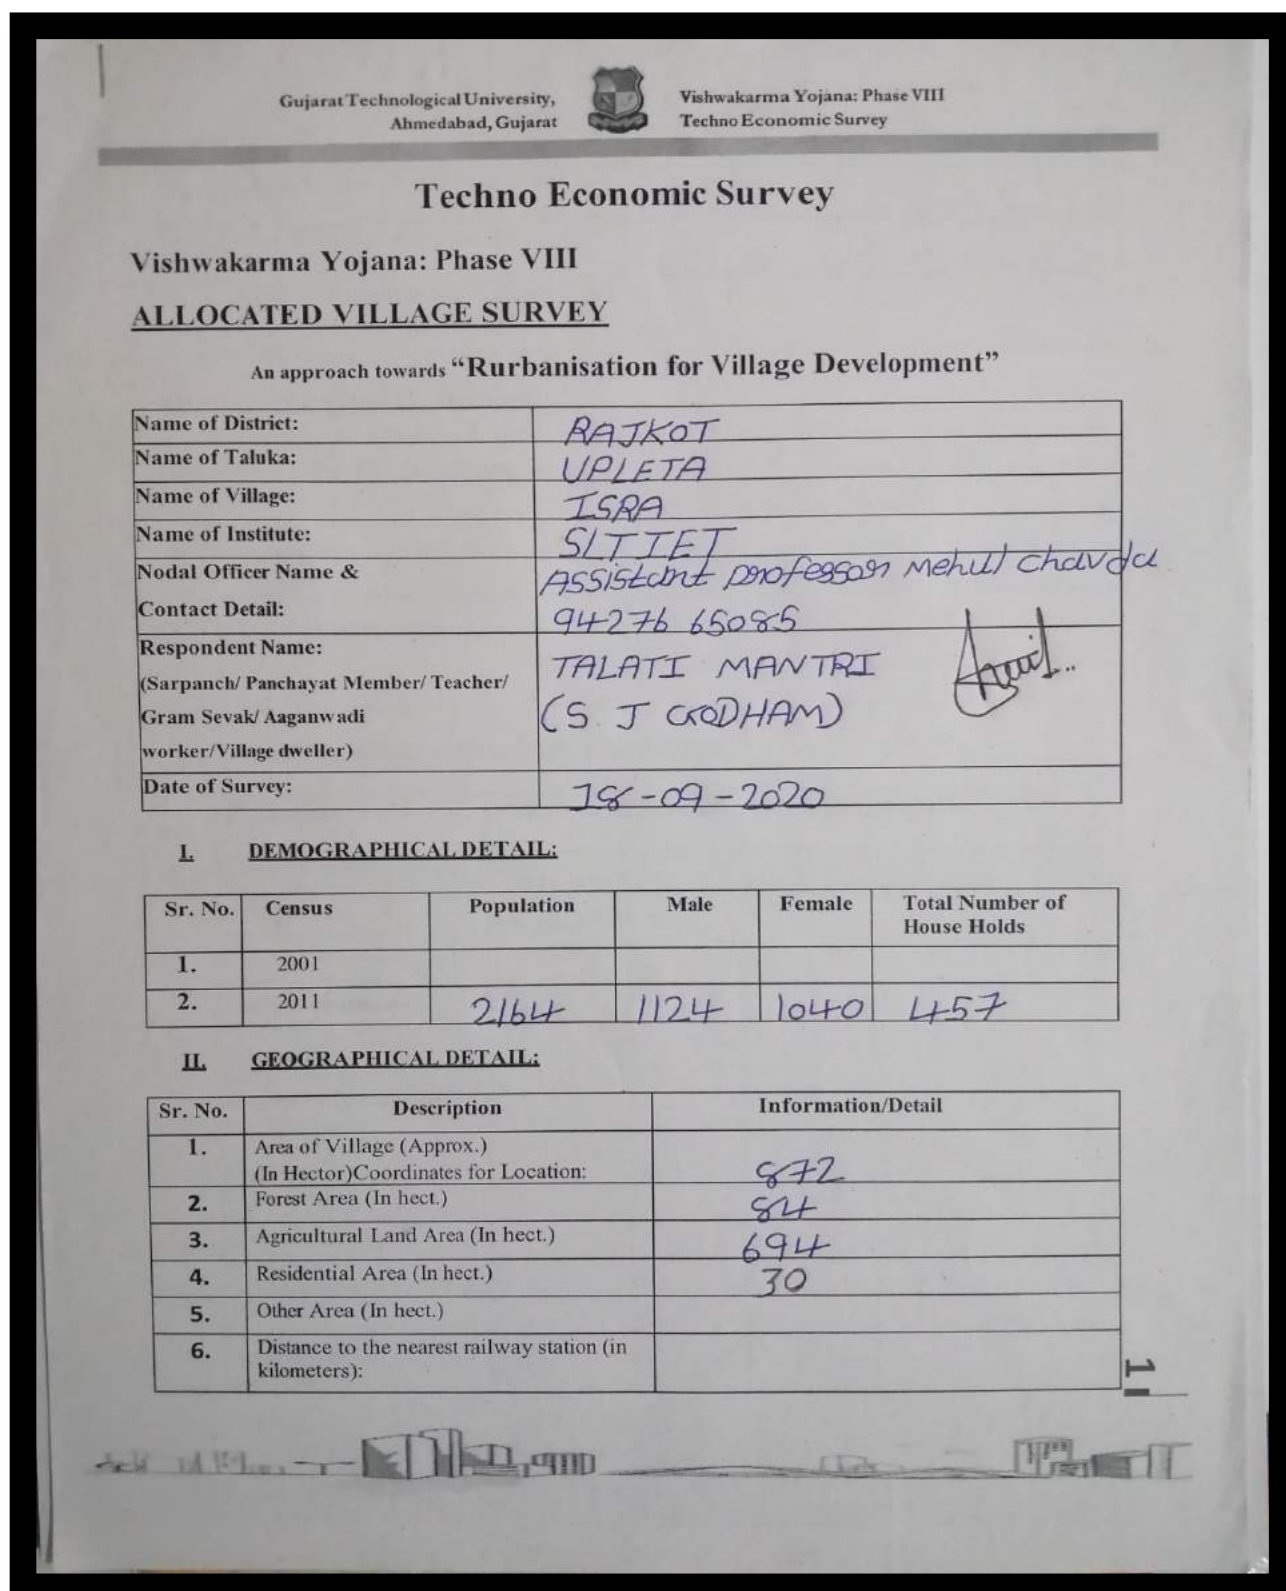 Gujarat Technological University,
Ahmedabad, Gujarat
Vishwakarma Yojana: Phase VIII
Techno Economic Survey
Techno Economic Survey
Vishwakarma Yojana: Phase VIII
ALLOCATED VILLAGE SURVEY
An approach towards “Rurbanisation for Village Development”
Name of District: RAJKOT
Name of Taluka: UPLETA
Name of Village: ISRA
Name of Institute: SLTIET
Nodal Officer Name & Assistant professor Mehul Chavda
Contact Detail: 94276 65085
Respondent Name: TALATI MANTRI
(Sarpanch/ Panchayat Member/ Teacher/
Gram Sevak/ Aaganwadi (S. J GODHAM)
worker/Village dweller)
Date of Survey: 18-09-2020
I. DEMOGRAPHICAL DETAIL:
Sr. No. Census Population Male Female Total Number of
House Holds
1. 2001
2. 2011 2164 1124 1040 457
II. GEOGRAPHICAL DETAIL:
Sr. No. Description Information/Detail
1. Area of Village (Approx.)
(In Hector)Coordinates for Location: 872
2. Forest Area (In hect.) 84
3. Agricultural Land Area (In hect.) 694
4. Residential Area (In hect.) 30
5. Other Area (In hect.)
6. Distance to the nearest railway station (in
kilometers):
1